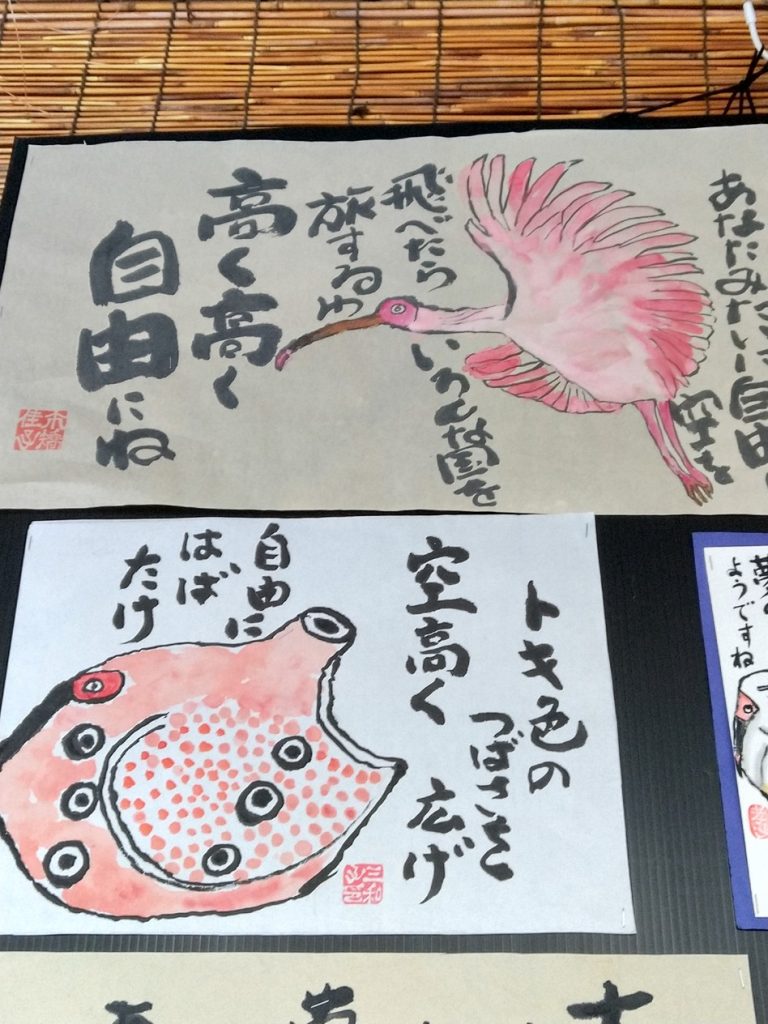 あなたみたいに自由に
空を
飛べたら
いろんな国を
旅するゆ
高く高く
自由にね
トキ色の
つばさを
広げ
空高く
自由に
はば
たけ
ようですね